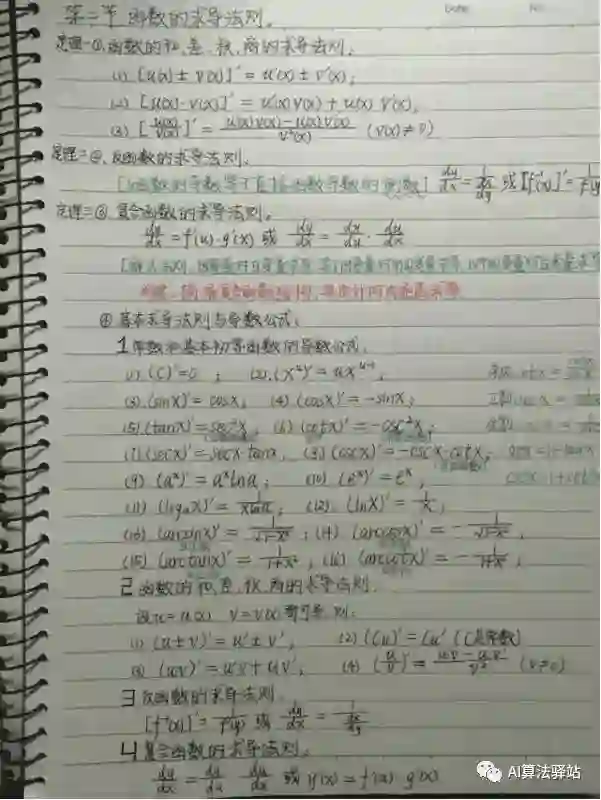 第二节 函数的求导法则。
定理一①.函数的和、差、积、商的求导法则.
(1) [u(x)±v(x)]′ = u′(x)±v′(x);
(2) [u(x)·v(x)]′ = u′(x)v(x)+u(x)v′(x),
(3) [u(x)/v(x)]′ = (u(x)v(x)-u(x)v(x))/v²(x) (v(x)≠0)
定理二②.反函数的求导法则.
[反函数的导数等于直接函数导数的倒数] dy/dx = 1/(dx/dy) 或 [f⁻¹(x)]′ = 1/f′(y)
定理三③.复合函数的求导法则。
dy/dx = f′(u)·g′(x) 或 dy/dx = dy/du · du/dx
④ 基本求导法则与导数公式:
1 常数和基本初等函数的导数公式.
(1) (C)′=0 ; (2) (x^u)′ = ux^(u-1),
(3) (sinx)′ = cosx, (4) (cosx)′ = -sinx;
(5) (tanx)′ = sec²x, (6) (cotx)′ = -csc²x;
(7) (secx)′ = secx·tanx, (8) (cscx)′ = -cscx·cotx;
(9) (a^x)′ = a^x lna ; (10) (e^x)′ = e^x,
(11) (log_a x)′ = 1/(xlna); (12) (lnx)′ = 1/x,
(13) (arcsinx)′ = 1/√(1-x²) ; (14) (arccosx)′ = -1/√(1-x²),
(15) (arctanx)′ = 1/(1+x²) , (16) (arccotx)′ = -1/(1+x²),
2 函数的和、差、积、商的求导法则.
设u=u(x) v=v(x)都可导,则:
(1) (u±v)′ = u′±v′, (2) (Cu)′ = Cu′ (C是常数)
(3) (uv)′ = u′v+uv′, (4) (u/v)′ = (u′v-uv′)/v² (v≠0)
3 反函数的求导法则.
[f⁻¹(x)]′ = 1/f′(y) 或 dy/dx = 1/(dx/dy)
4 复合函数的求导法则。
dy/dx = dy/du · du/dx 或 y′(x) = f′(u)·g′(x)
AI算法驿站